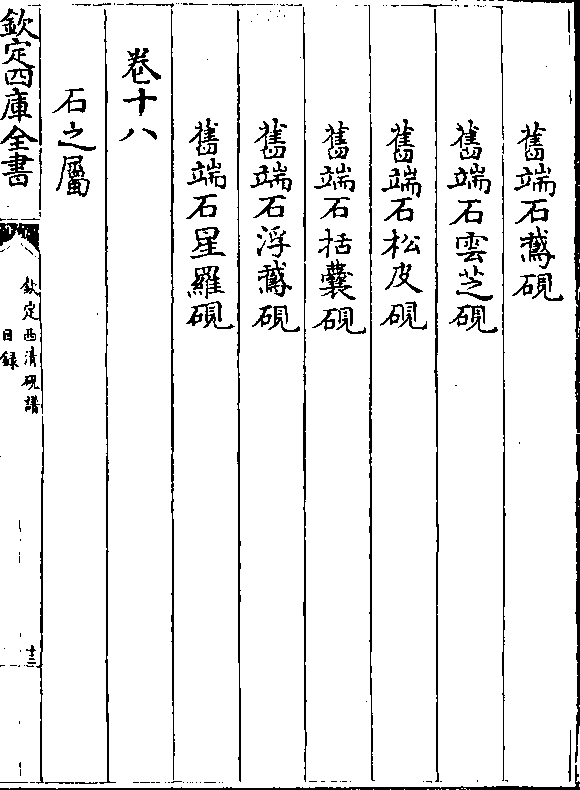 舊端石鵞硯
舊端石雲芝硯
舊端石松皮硯
舊端石括囊硯
舊端石浮鵞硯
舊端石星羅硯
卷十八
石之屬
欽定四庫全書
欽定西清硯譜
目録
十三